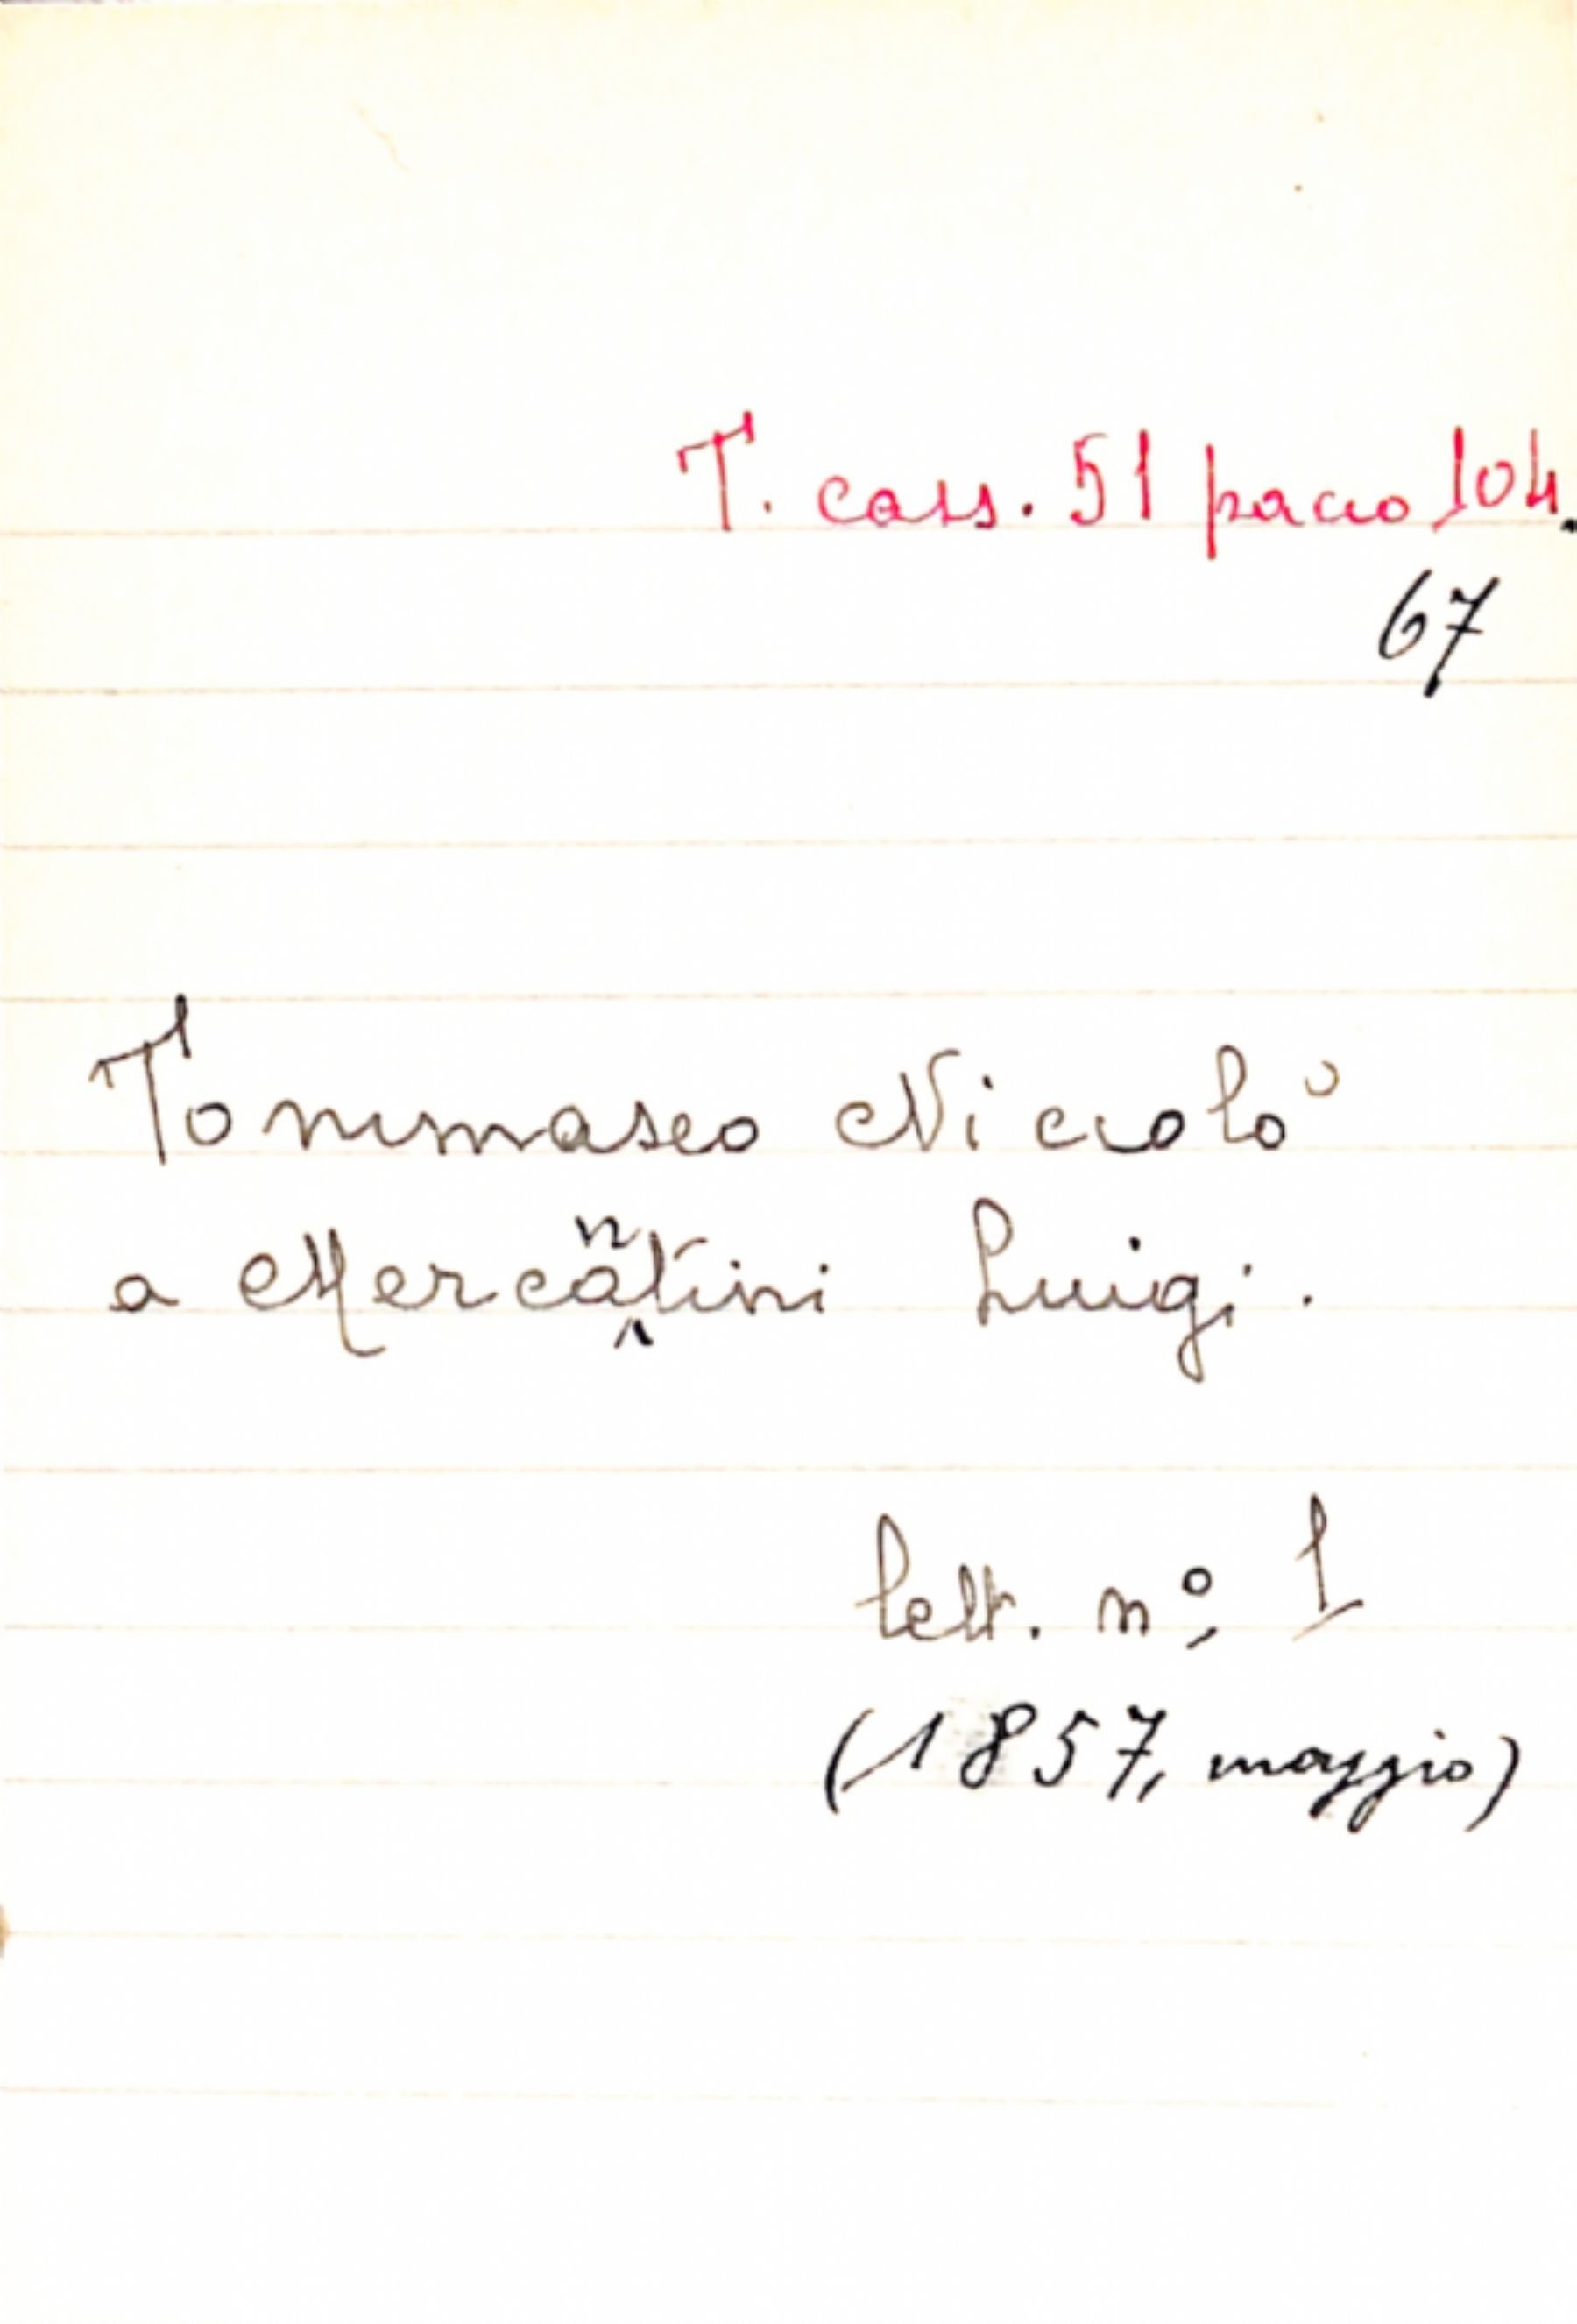 T. cass. 51 pacco 104.
67
Tommaseo Niccolò
a Mercantini Luigi.
lett. n.º 1
(1857, maggio)